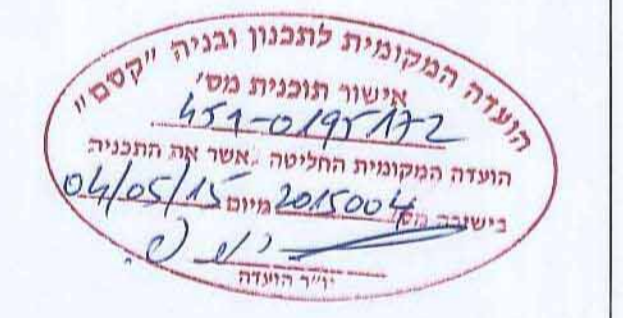 הועדה המקומית לתכנון ובניה "קסם"
אישור תוכנית מס'
451-0195172
הועדה המקומית החליטה לאשר את התכנית
בישיבה מס' 2015004 מיום 04/05/15
יו"ר הועדה